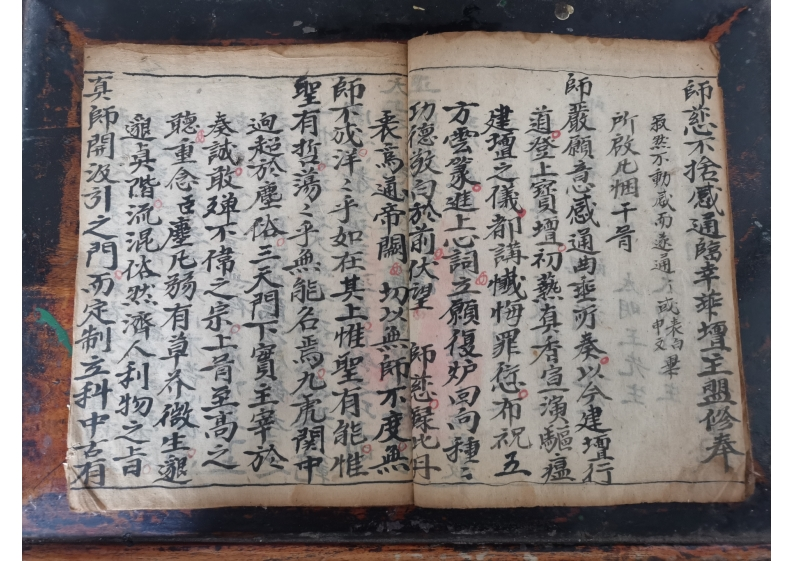 師慈不捨感通臨幸華壇主盟修奉
寂然不動感而遂通方或表白申文畢
所啟凡悃干冒
師嚴願意感通曲垂所奏以今建壇行
道登上寶壇初爇真香宣演驅瘟
建壇之儀都講懺悔罪愆布祝五
方雲篆進上心詞立願復爐回向種〻
功德敷宣於前伏望 師慈錄此丹
衷焉通帝闕切以無師不度無
師不成洋〻乎如在其上惟聖有能惟
聖有哲蕩〻乎無能名焉九虎関中
迥超於塵俗三天門下實主宰於
奏誠敢殫不偹之宗上冒至高之
聽重念臣塵凡弱有草芥微生邈
真階流混俗然濟人利物之旨
真師開汲引之門而定制立科中古有